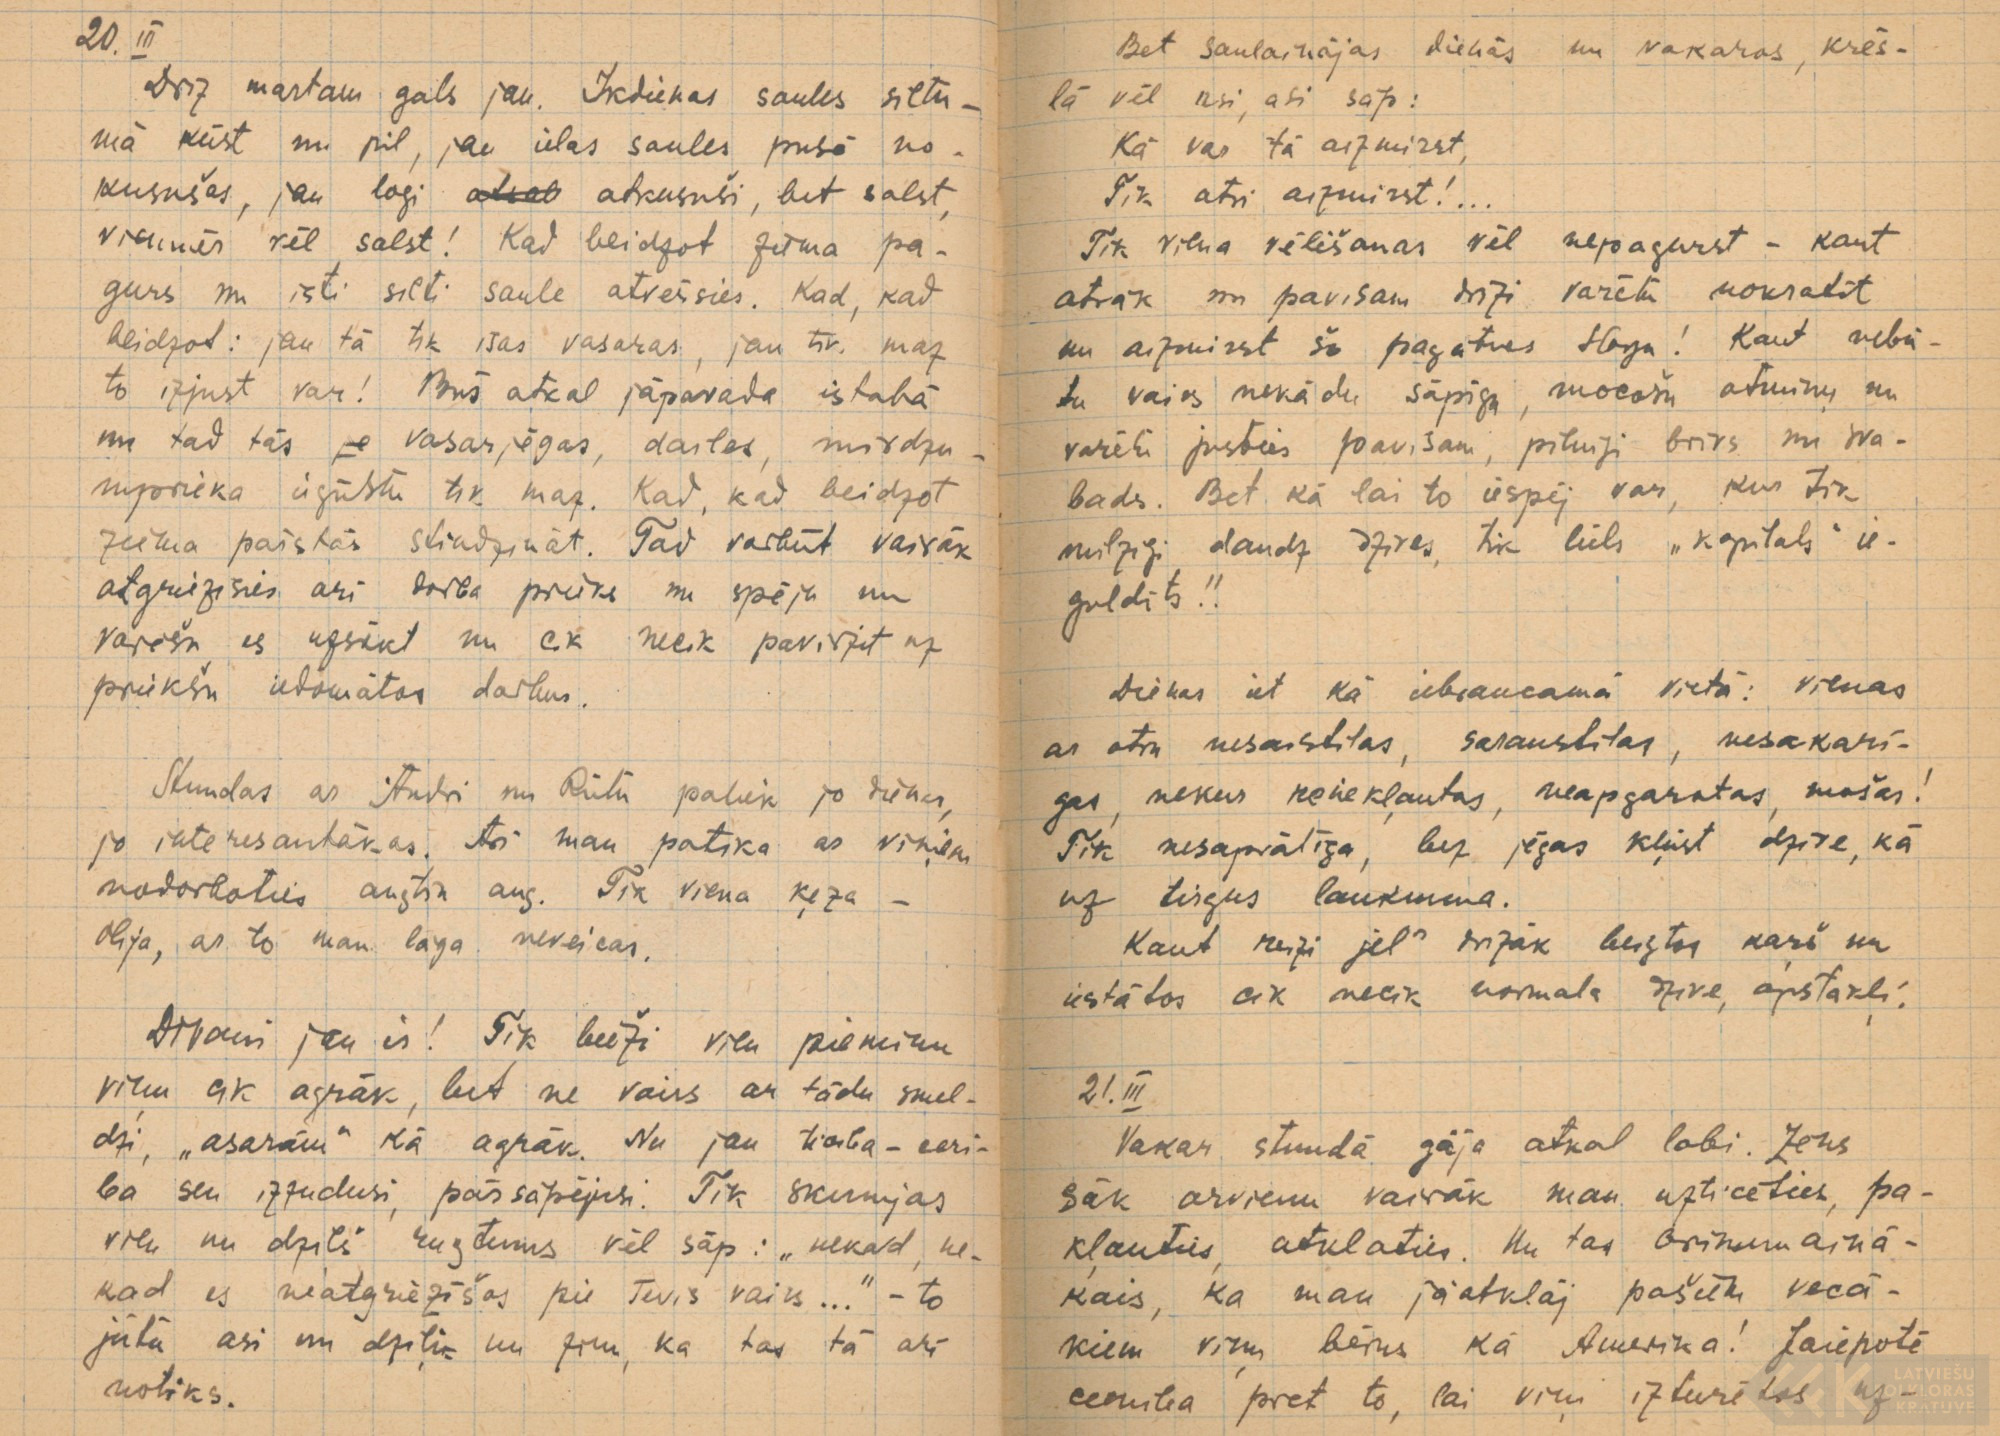 20. III
Drīz martam gals jau. Ikdienas saules siltu-
mā kūst un pil, jau ielas saules pusē no-
kusušas, jau logi atkusuši, bet salst,
vienmēr vēl salst! Kad beidzot ziema pa-
gurs un īsti silti saule atvērsies. Kad, kad
beidzot: jau tā tik īsas vasaras, jau tik maz
to izjust var! Būs atkal jāpavada istabā
un tad tās vasarjēgas, dailes, mirdzu-
mprieka iegūstu tik maz. Kad, kad beidzot
ziema pārstās stindzināt. Tad varbūt vairāk
atgriezīsies arī darba prieks un spēja un
varēšu es uzsākt un cik necik pavirzīt uz
priekšu iedomātos darbus.
Stundas ar Andri un Rūtu paliek jo dienas,
jo interesantākas. Arī man patika ar viņiem
nodarboties augtin aug. Tik viena ķeza -
oļģa, ar to man lāga neveicas.
Divaini jau ir! Tik bieži vien pieminu
viņu cik agrāk, bet ne vairs ar tādu smel-
dzi, „asarām" kā agrāk. Nu jau ticība - ceri-
ba sen izzudusi, pārsāpējusi. Tik skumjas
vien un dziļš rugtums vēl sāp: „nekad, ne-
kad es neatgriezīšos pie Tevis vairs..." - to
jūtu asi un dziļi un zinu, ka tas tā arī
notiks.
Bet saulainājās dienās un vakaros, krēs-
lā vēl asi, asi sāp:
Kā var tā aizmirst,
Tik ātri aizmirst!...
Tik viena vēlēšanās vēl nepagurst - kaut
ātrāk un pavisam drīzi varētu nokratīt
un aizmirst šo pagātnes slogu! Kaut nebū-
tu vairs nekādu sāpīgu, mocošu atmiņu un
varētu justies pavisam, pilnīgi brīvs un sva-
bads. Bet kā lai to iespēj var, kur tik
milzīgi daudz dzīves, tik liels „kapitāls" ie-
guldīts!!
Dienas iet kā iebraucamā vietā: vienas
ar otru nesaistītas, saraustītas, nesakarī-
gas, nekur neiekļautas, neapgarotas, mošas!
Tik nesaprātīga, bez jēgas kļūst dzīve, kā
uz tirgus laukuma.
Kaut reizi jel drīzāk beigtos karš un
iestātos cik necik normāla dzīve, apstākļi!
21. III
Vakar stundā gāja atkal labi. Zens
sāk arvienu vairāk man uzticēties, pa-
kļauties, atklāties. Un tas brīnumainā-
kais, ka man jāatklāj pašiem vecā-
kiem viņu bērns kā Amerika! Jāiepotē
cienība pret to, lai viņi izturētos uz-
LATVIEŠU
FOLKLORAS
KRĀTUVE